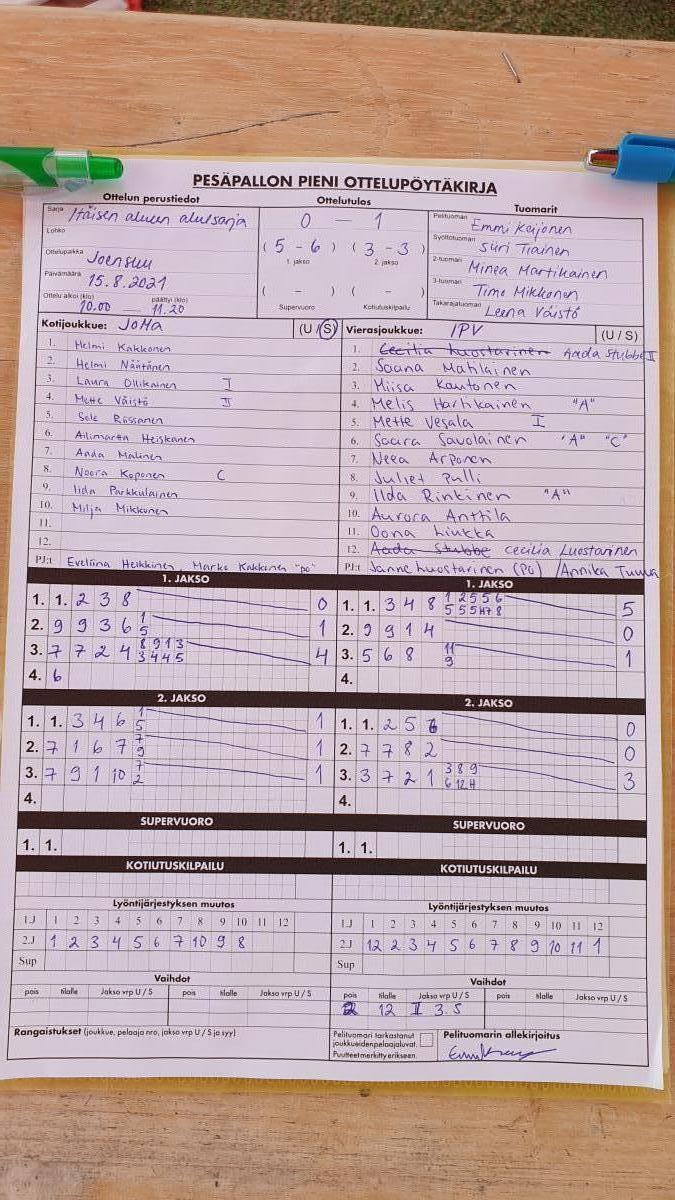 PESÄPALLON PIENI OTTELUPÖYTÄKIRJA
Ottelun perustiedot
Ottelutulos
Tuomarit
Sarja Itäisen alueen aluesarja
Lohko
Ottelupaikka Joensuu
Päivämäärä 15.8.2021
Ottelu alkoi (klo) päättyi (klo)
10.00 — 11.20
0 — 1
( 5 - 6 ) ( 3 - 3 )
1. jakso 2. jakso
( - ) ( - )
Supervuoro Kotiutuskilpailu
Pelituomari Emmi Keijonen
Syöttötuomari Suri Tiainen
2-tuomari Minea Martikainen
3-tuomari Timo Mikkonen
Takarajatuomari Leena Väistö
Kotijoukkue: JoMa (U / S)
1. Helmi Kakkonen
2. Helmi Näätänen
3. Laura Ollikainen I
4. Mette Väistö II
5. Sole Rössänen
6. Ailimarta Heiskanen
7. Aada Malinen
8. Noora Koponen C
9. Iida Parkkulainen
10. Milja Mikkonen
11.
12.
PJ:t Eveliina Heikkinen, Marko Kakkonen "po"
Vierasjoukkue: IPV (U / S)
1. Cecilia Luostarinen Aada Stubbe II
2. Saana Matilainen
3. Miisa Kautonen
4. Melis Hartikainen "A"
5. Mette Vesala I
6. Saara Savolainen "A" "C"
7. Neea Arponen
8. Juliet Pulli
9. Ilda Rinkinen "A"
10. Aurora Anttila
11. Oona Liukka
12. Aada Stubbe Cecilia Luostarinen
PJ:t Janne Luostarinen (PO) / Annika Tuuva
1. JAKSO
1. 1. 2 3 8 0
2. 9 9 3 6 1 5 1
3. 7 7 2 4 8 9 1 3 3 4 4 5 4
4. 6
1. JAKSO
1. 1. 3 4 8 1 2 5 5 6 5 5 5 11 7 8 5
2. 9 9 1 4 0
3. 5 6 8 11 9 1
4.
2. JAKSO
1. 1. 3 4 6 1 5 1
2. 7 1 6 7 7 9 1
3. 7 9 1 10 7 2 1
4.
2. JAKSO
1. 1. 2 5 6 0
2. 7 7 8 2 0
3. 3 7 2 1 3 8 9 6 12 11 3
4.
SUPERVUORO
1. 1.
SUPERVUORO
1. 1.
KOTIUTUSKILPAILU
KOTIUTUSKILPAILU
Lyöntijärjestyksen muutos
1.J 1 2 3 4 5 6 7 8 9 10 11 12
2.J 1 2 3 4 5 6 7 10 9 8
Sup
Lyöntijärjestyksen muutos
1.J 1 2 3 4 5 6 7 8 9 10 11 12
2.J 12 2 3 4 5 6 7 8 9 10 11 1
Sup
Vaihdot
pois tilalle Jakso vrp U / S pois tilalle Jakso vrp U / S
Vaihdot
pois tilalle Jakso vrp U / S pois tilalle Jakso vrp U / S
12 II 3. S
Rangaistukset (joukkue, pelaaja nro, jakso vrp U / S ja syy)
Pelituomari tarkastanut
joukkueiden pelaajaluvat.
Puutteet merkitty erikseen.
Pelituomarin allekirjoitus